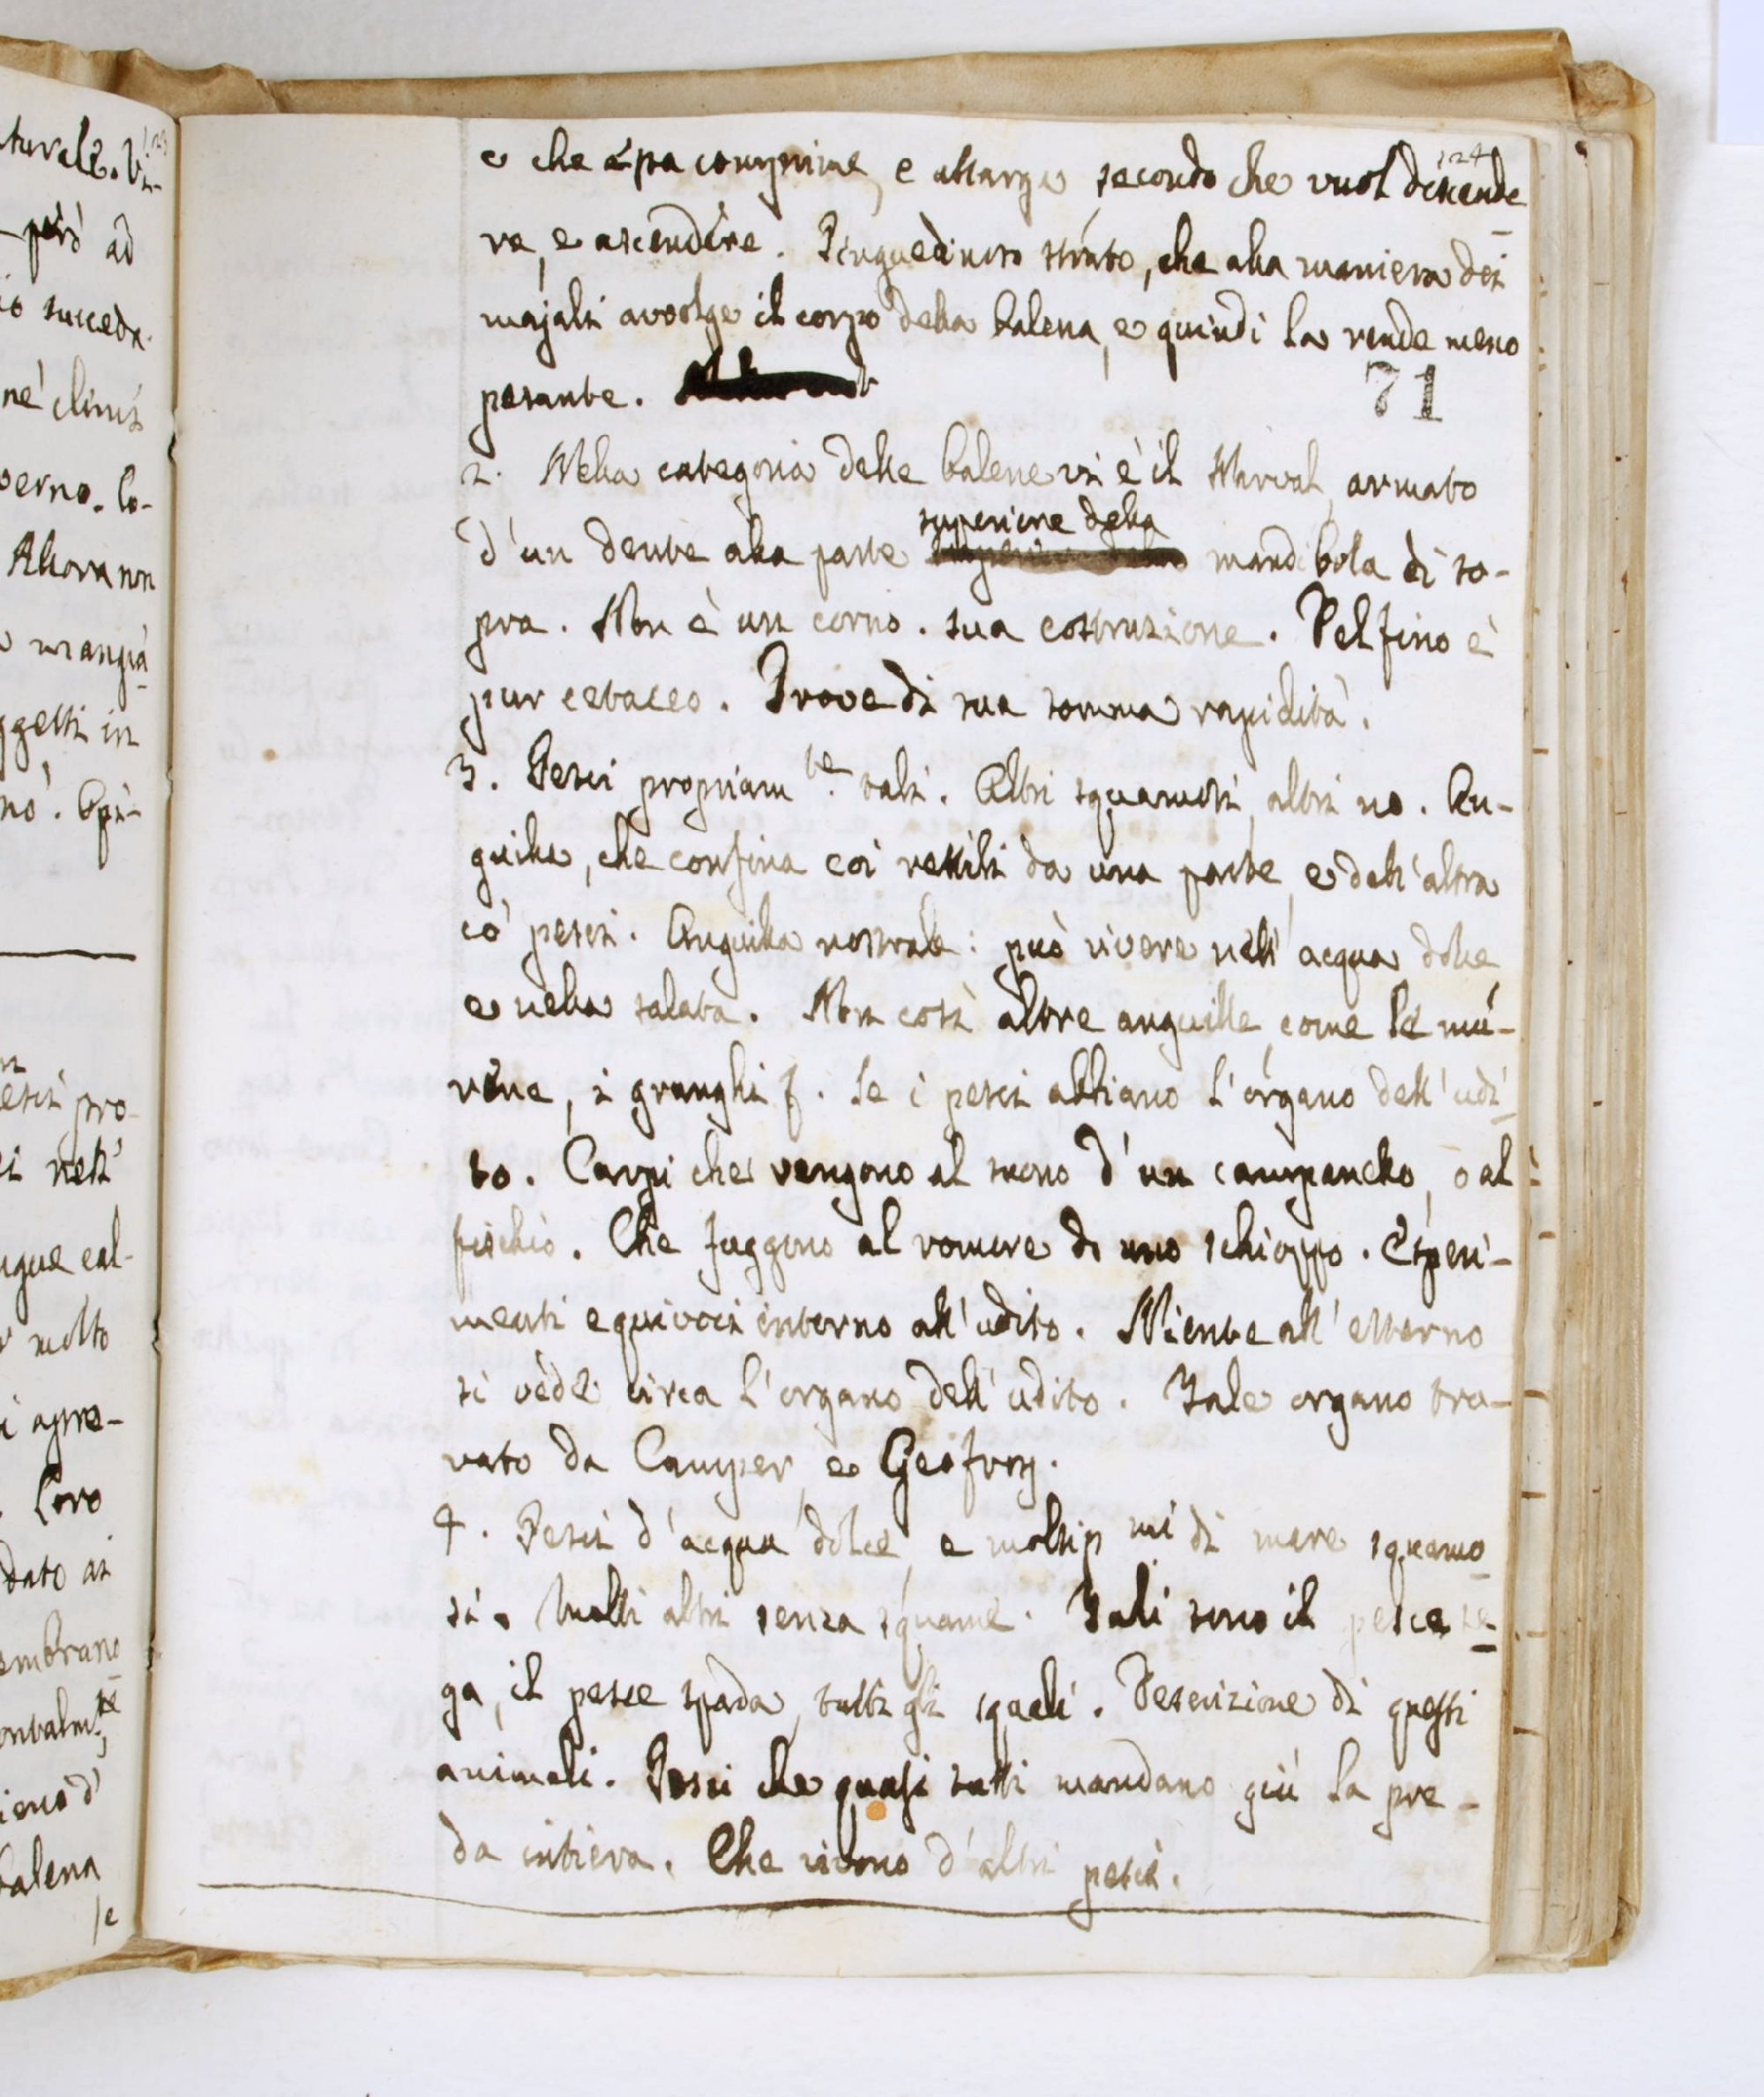 turale. Vi-
però ad
io succeda.
nè climi
verno. Co-
Allora non
mangia
ggetti in
no'. Opi-
esci pro-
ei nell'
ngue cal-
molto
i apre-
Loro
dato ai
embrano
ontalm.te
ieno d'
balena
/e
124
e che essa comprime, e allarga secondo che vuol discende
re, e ascendere. Pinguedinoso strato, che alla maniera dei
majali avvolge il corpo della balena, e quindi la rende meno
pesante.
71
2. Nella categoria delle balene vi è il Narval, armato
superiore della
d'un dente alla parte mandibola di so-
pra. Non è un corno. Sua costruzione. Delfino è
pur cetaceo. Prove di sua somma rapidità.
3. Pesci propriam.te tali. Altri squamosi, altri no. An-
guilla, che confina coi rettili da una parte, e dall'altra
co' pesci. Anguilla nostrale: può vivere nell'acqua dolce
e nella salata. Non così altre anguille, come le mu-
rene, i gronghi f. Se i pesci abbiano l'organo dell'udi-
to. Carpi che vengono al suono d'un campanello, o al
fischio. Che fuggono al romore di uno schioppo. Esperi-
menti equivoci intorno all'udito. Niente all'esterno
si vede circa l'organo dell'udito. Tale organo tro-
vato da Camper e Geofroy.
4. Pesci d'acqua dolce, e moltip mi di mare squamo
si. Molti altri senza squame. Tali sono il pesce se
ga, il pesce spada, tutti gli squali. Descrizione di questi
animali. Pesci che quasi tutti mandano giù la pre-
da intiera. Che vivono d'altri pesci.